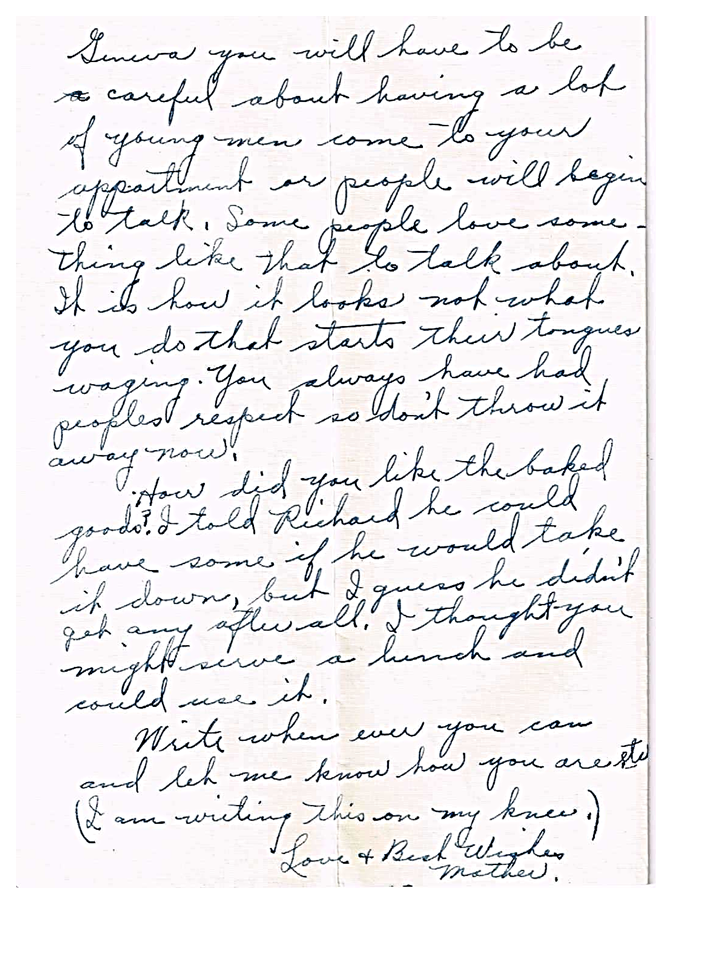 Geneva you will have to be
a careful about having a lot
of young men come to your
appartment or people will begin
to talk. Some people love some-
thing like that to talk about.
It is how it looks not what
you do that starts their tongues
waging. You always have had
peoples respect so don't throw it
away now.
How did you like the baked
goods? I told Richard he could
have some if he would take
it down, but I guess he didn't
get any after all. I thought you
might serve a lunch and
could use it.
Write when ever you can
and let me know how you are etc
(I am writing this on my knee.)
Love + Best Wishes
Mother.